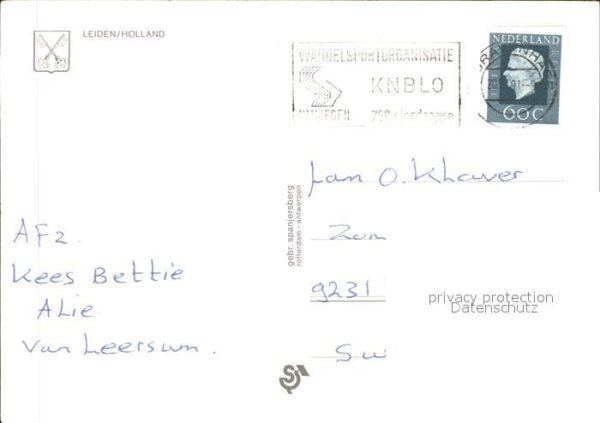 LEIDEN/HOLLAND
WANDELSPORTORGANISATIE
KNBLO
NIJMEGEN 75e vierdaagse
NEDERLAND
60c
gebr. spanjersberg
rotterdam - antwerpen
AF2.
Kees Bettie
Alie
van Leersum.
Fam O. Khaver
Zon
9231
Sw
privacy protection
Datenschutz